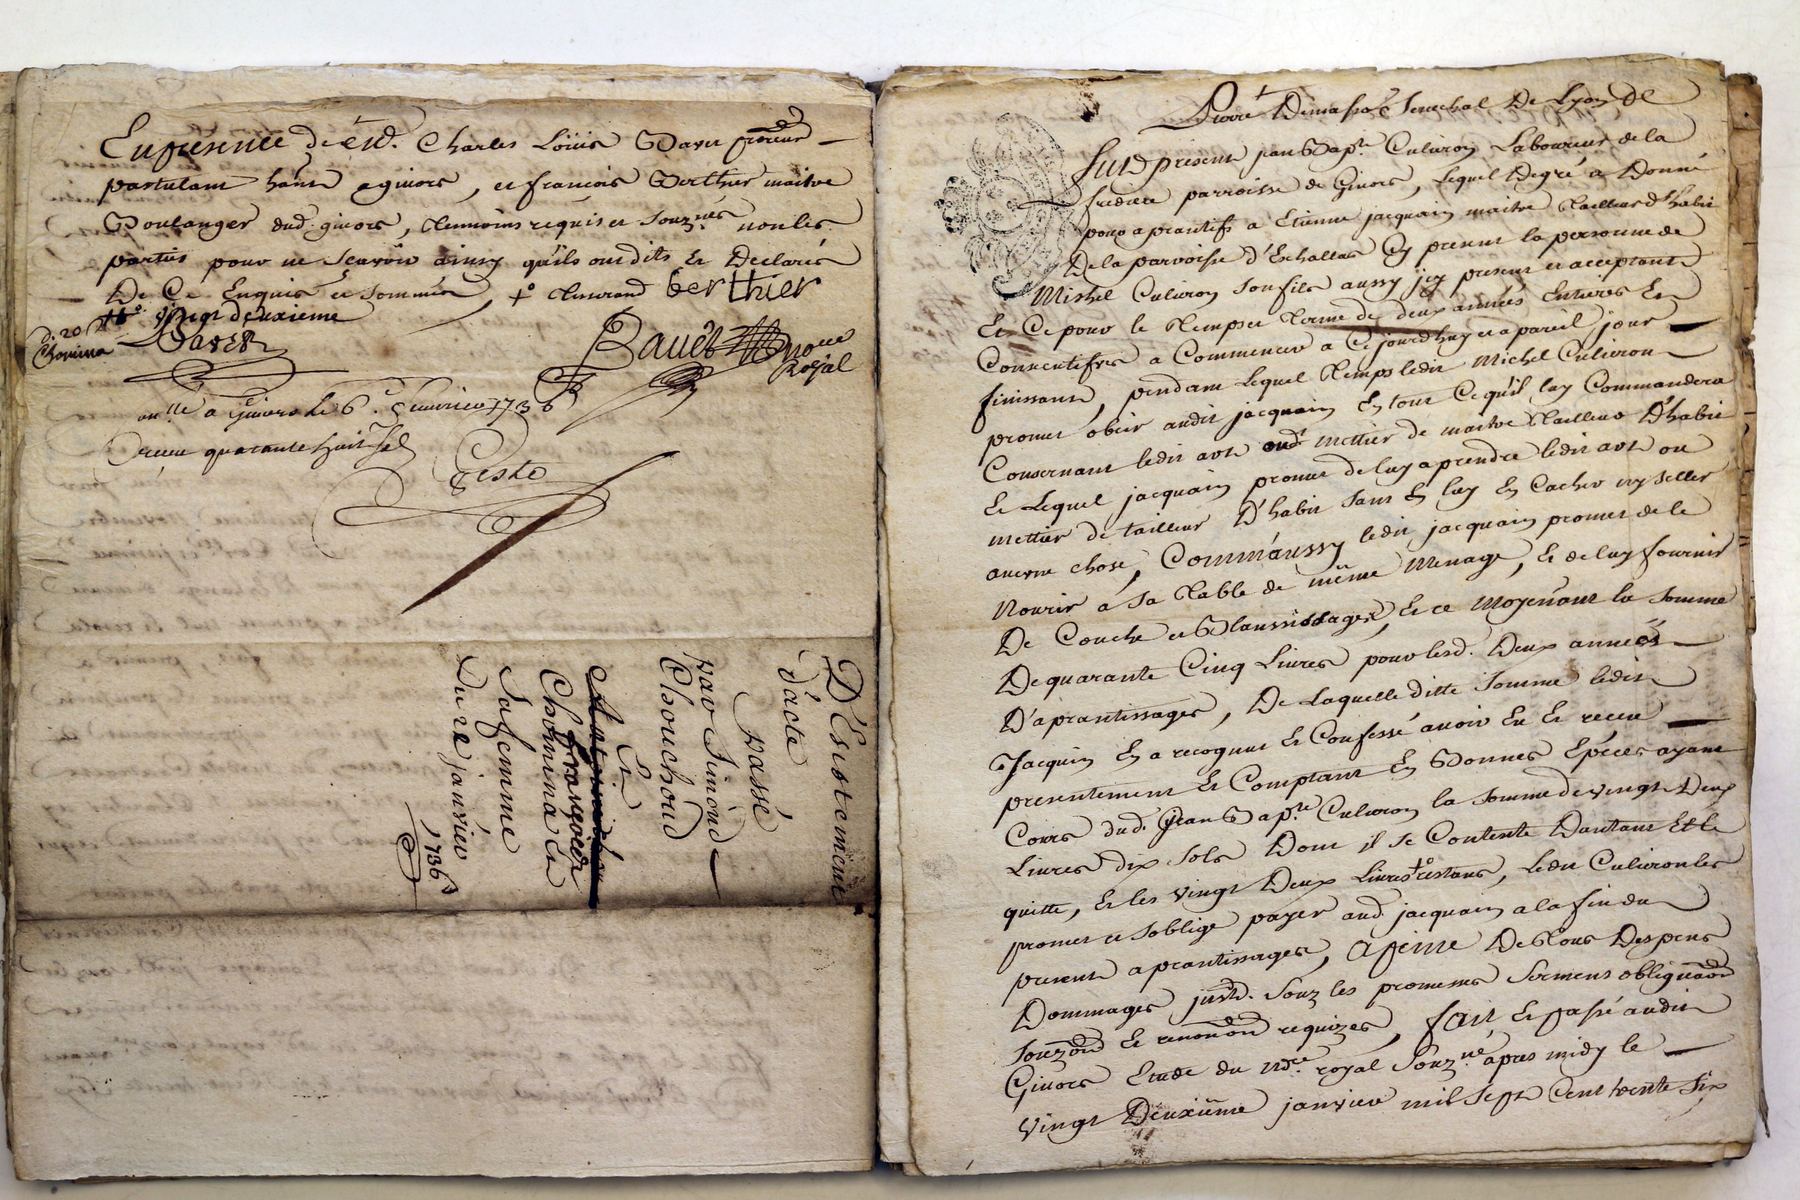 En presence de sr. Charles Loüis Baver
postulant a givors, et francois Berthier maitre
Boulanger dud. givors, temoins requis et souz.nés non les
parties pour ne scavoir ainsy qu'ils ont dits et declarés
De Ce Enquis et sommés, +° berthier
+° vingt deuxieme
D. 20
Chomina
Baver
Bauet no.re
Royal
a Givors le 6. 1736
receu quarante huit sols
Geste
Desistement
d'acte
Passé
Par Simond
Chouchoud
Et
francoise
Chomina
sa femme
Du 22 janvier
1736
Senechal De Lyon
fut present jean Bap.te Culieron Laboureur de la
parroisse de Givors, Lequel De gré a Donné
pour aprantifs a Etienne jacquain maitre tailleur d'habit
De la parroisse d'Echallas Cy present la personne de
Mishel Culieron son fils aussy jcy present et acceptant
Et Ce pour le temps et terme de deux années Entieres Et
Consecutifves a Commencer a Ce jourd'huy et a pareil jour
finissant, pendant Lequel temps ledit Michel Culieron
promet obeir audit jacquain En tout Ce qu'il luy Commandera
Consernant ledit art oud. mettier de maitre tailleur D'habit
Et Lequel jacquain promet de luy aprendre ledit art ou
mettier de tailleur D'habit sans En luy En Cacher ny seller
aucune chose, Comm'aussy ledit jacquain promet de le
Nourir a sa table de même Menage, Et de luy fournir
De Couche et Blanssissages, Et ce Moyenant la somme
De quarante Cinq Livres pour lesd. Deux années
D'aprantissages, De Laquelle ditte somme ledit
Jacquin En a recognut Et Confessé avoir Eu Et receu
presentement Et Comptant En Bonnes Epéces ayant
Cours dud. Jean Bap.te Culieron la somme de vingt Deux
Livres dix sols Dont il se Contente Dautant Et le
quitte, Et les vingt Deux Livres +° restans, ledit Culieron les
promet et s'oblige payer aud. jacquain a la fin du
present aprantissages, A peine De tous Despens
Dommages Souz les promesses serments obligaõn
souzõn Et renonõn requizes, fait Et passé audit
Givors Etude du no.re royal Souz.né apres midy le
vingt Deuxiéme janvier mil Sept Cent trente Six